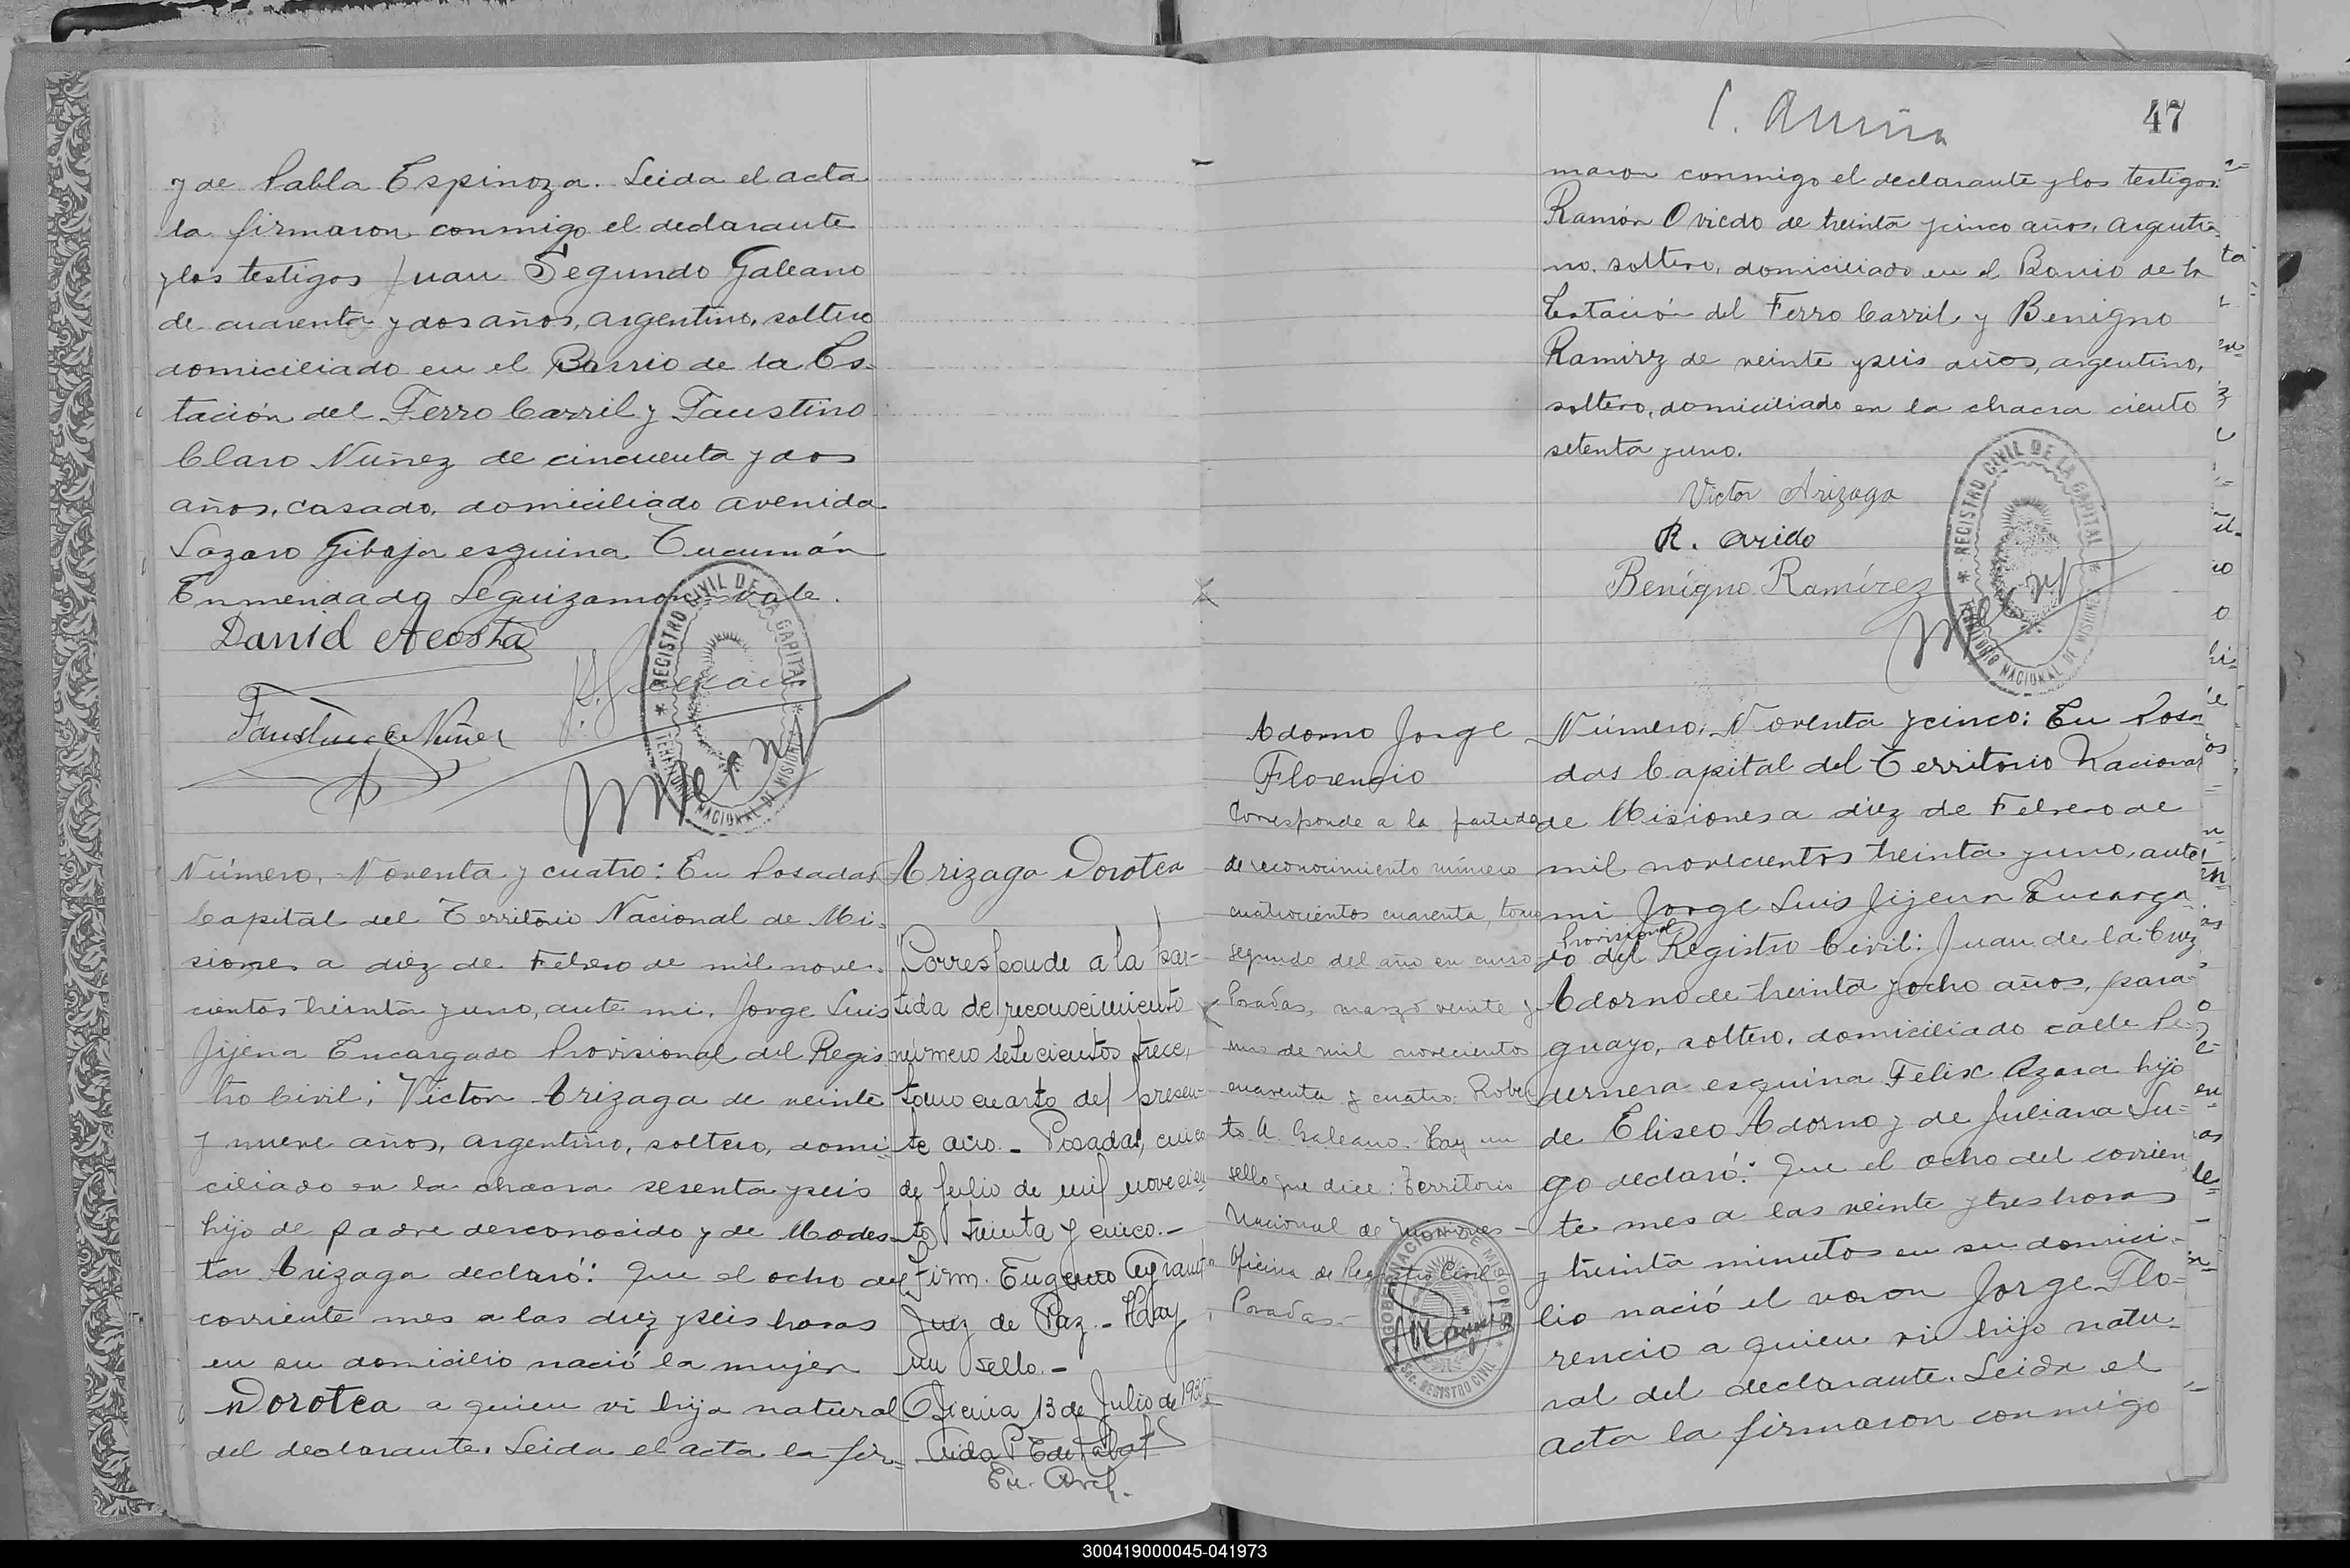 y de Pabla Espinoza. Leida el acta
la firmaron conmigo el declarante
y los testigos Juan Segundo Galeano
de cuarenta y dos años, argentino, soltero
domiciliado en el Barrio de la Es-
tación del Ferro Carril y Faustino
Claro Nuñez de cincuenta y dos
años, casado, domiciliado avenida
Lazaro Gibaja esquina Tucumán
Enmendado Leguizamon vale.
David Acosta
Faustino C. Nuñez
REGISTRO CIVIL DE LA CAPITAL
TERRITORIO NACIONAL DE MISIONES
Número, Noventa y cuatro: En Posadas
Capital del Territorio Nacional de Mi-
siones a diez de Febrero de mil nove-
cientos treinta y uno, ante mi, Jorge Luis
Jijena Encargado Provisional del Regis
tro Civil; Victor Arizaga de veinte
y nueve años, argentino, soltero, domi-
ciliado en la chacra sesenta y seis
hijo de padre desconocido y de Modes-
ta Arizaga declaró: Que el ocho del
corriente mes a las diez y seis horas
en su domicilio nació la mujer
Dorotea a quien vi hija natural
del declarante. Leida el acta la fir-
Arizaga Dorotea
Corresponde a la par-
tida de reconocimiento
número setecientos trece,
tomo cuarto del presen-
te año. - Posadas, cinco
de julio de mil novecien
tos treinta y cinco. -
Firm. Eugenio
Juez de Paz. - Hay
un sello. -
Oficina 13 de Julio de 1935
En. Arch.
47
maron conmigo el declarante y los testigos
Ramón Oviedo de treinta y cinco años, argenti-
no, soltero, domiciliado en el Barrio de la
Estación del Ferro Carril y Benigno
Ramirez de veinte y seis años, argentino,
soltero, domiciliado en la chacra ciento
setenta y uno.
Victor Arizaga
R. Oviedo
Benigno Ramírez
REGISTRO CIVIL DE LA CAPITAL
TERRITORIO NACIONAL DE MISIONES
Adorno Jorge
Florencio
Corresponde a la partida
de reconocimiento número
cuatrocientos cuarenta, tomo
segundo del año en curso
Posadas, marzo veinte y
uno de mil novecientos
cuarenta y cuatro. Rober
to A. Galeano. Hay un
sello que dice: Territorio
Nacional de Misiones -
Oficina de Registro Civil
Posadas. -
GOBERNACION DE MISIONES
SEC. REGISTRO CIVIL
Número, Noventa y cinco: En Posa
das Capital del Territorio Nacional
de Misiones a diez de Febrero de
mil novecientos treinta y uno, ante
mi Jorge Luis Jijena Encarga-
Provisional
do del Registro Civil: Juan de la Cruz
Adorno de treinta y ocho años, para-
guayo, soltero, domiciliado calle Pe-
dernera esquina Felix Azara hijo
de Eliseo Adorno y de Juliana Lu-
go declaró: Que el ocho del corrien
te mes a las veinte y tres horas
y treinta minutos en su domici-
lio nació el varon Jorge Flo-
rencio a quien vi hijo natu-
ral del declarante. Leida el
acta la firmaron conmigo
300419000045-041973